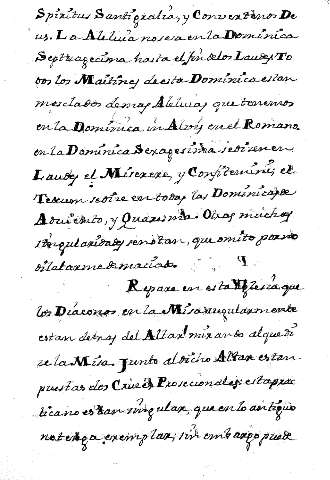 Spiritus Santi gralia, y Convertenos De
us. La Aleluia no se sa en la Dominica
Septuagecima hasta el fin de los Laudes To
dos los Maitines de esta Dominica estan
mesclados de mas Aleluias que tenemos
en la Dominica in Alvis en el Romano
en la Dominica Sexagesima se dicen en
Laudes el Miserere, y Confitemini, el
Tedeum se dice en todas las Dominicas de
Adviento, y Quaresma Otras muchas
singularidades se notan, que omito por no
dilatarme demaciado.
Repare en esta Yglesia que
los Diaconos en la Misa regularmente
estan detras del Altar mirando al que di
ze la Misa. Junto al dicho Altar estan
puestas dos Cruces Prosecionales: esta prac
tica no es tan singular, que en lo antiguo
no tenga exemplar, sin embargo puede